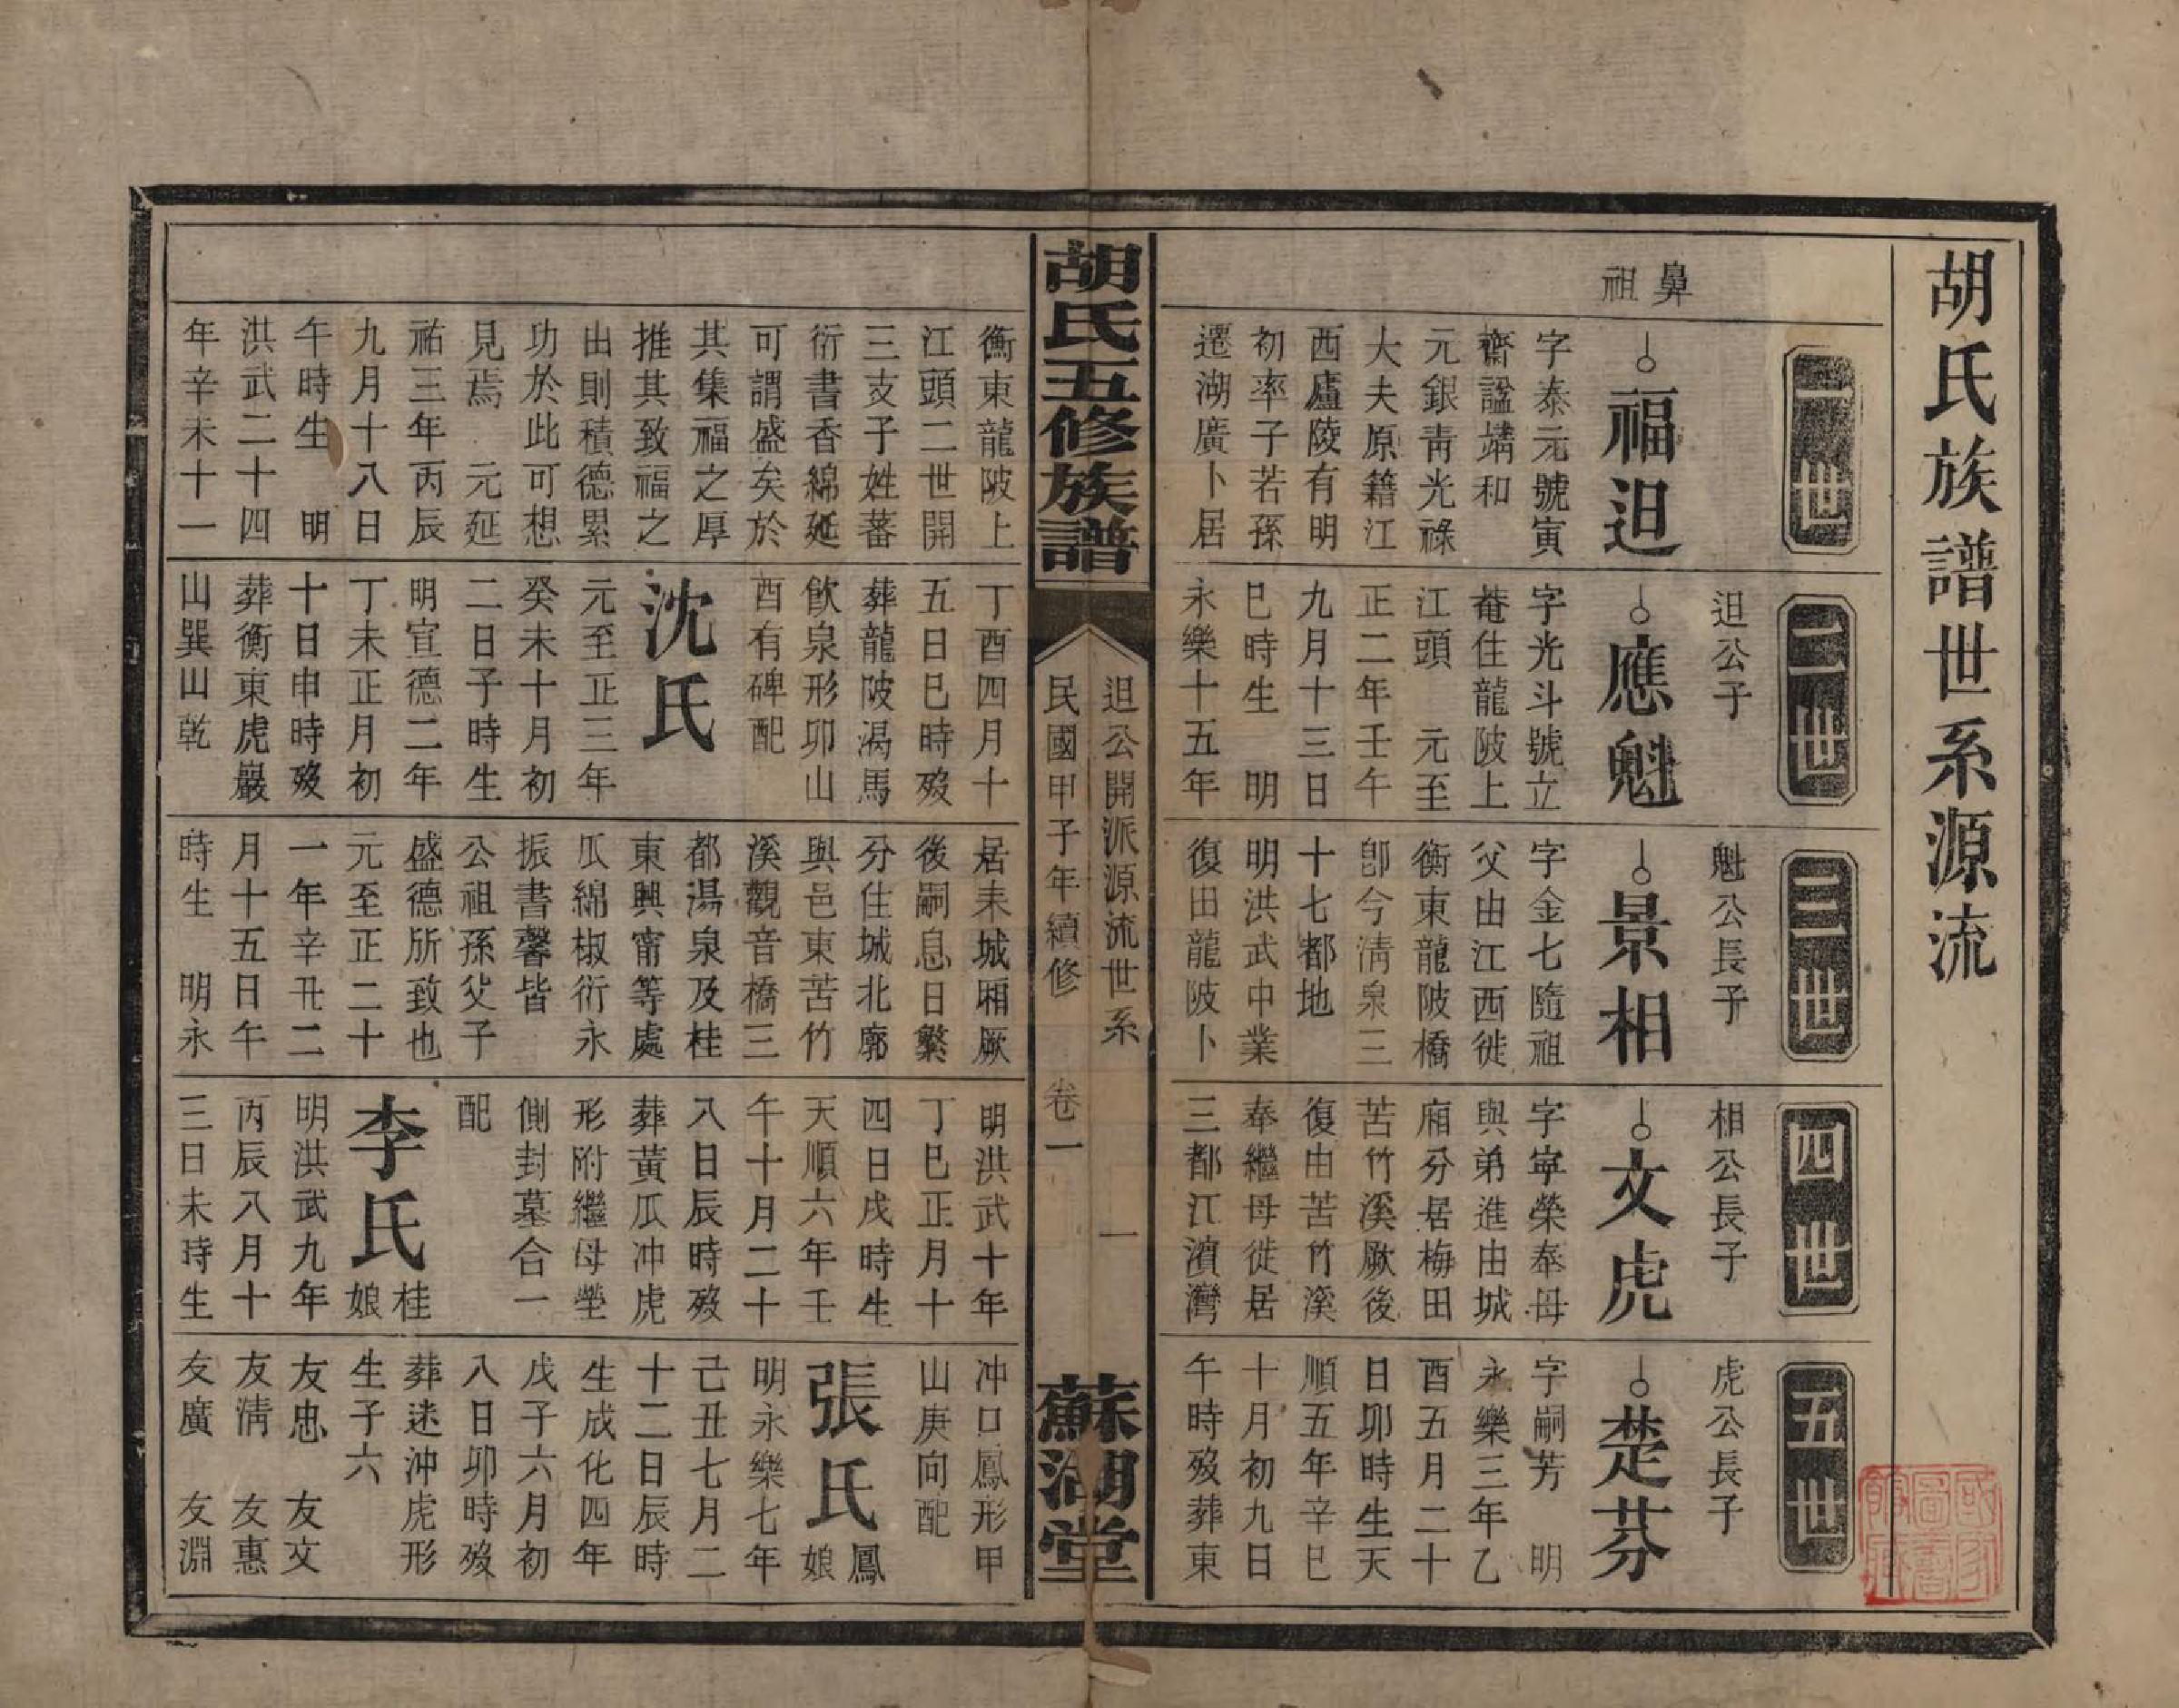 胡氏族譜世系源流
一世
鼻祖
福迫
字泰元號寅
齋諡靖和
元銀靑光祿
大夫原籍江
西廬陵有明
初率子若孫
遷湖廣卜居
二世
迫公子
應魁
字光斗號立
菴住龍陂上
江頭 元至
正二年壬午
九月十三日
巳時生 明
永樂十五年
三世
魁公長子
景相
字金七隨祖
父由江西徙
衡東龍陂橋
卽今淸泉三
十七都地
明洪武中業
復田龍陂卜
四世
相公長子
文虎
字寧榮奉母
與弟進由城
廂分居梅田
苦竹溪厥後
復由苦竹溪
奉繼母徙居
三都江濱灣
五世
虎公長子
楚芬
字嗣芳 明
永樂三年乙
酉五月二十
日卯時生天
順五年辛巳
十月初九日
午時歿葬東
胡氏五修族譜
迫公開派源流世系 一
民國甲子年續修 卷一
蘇湖堂
衡東龍陂上
江頭二世開
三支子姓蕃
衍書香綿延
可謂盛矣於
其集福之厚
推其致福之
出則積德累
功於此可想
見焉 元延
祐三年丙辰
九月十八日
午時生 明
洪武二十四
年辛未十一
丁酉四月十
五日巳時歿
葬龍陂渴馬
飲泉形卯山
酉有碑配
沈氏
元至正三年
癸未十月初
二日子時生
明宣德二年
丁未正月初
十日申時歿
葬衡東虎巖
山巽山乾
居耒城廂厥
後嗣息日繁
分住城北廓
與邑東苦竹
溪觀音橋三
都湯泉及桂
東興甯等處
瓜綿椒衍永
振書馨皆
公祖孫父子
盛德所致也
元至正二十
一年辛丑二
月十五日午
時生 明永
明洪武十年
丁巳正月十
四日戌時生
天順六年壬
午十月二十
八日辰時歿
葬黃瓜冲虎
形附繼母塋
側封墓合一
配
李氏桂娘
明洪武九年
丙辰八月十
三日未時生
冲口鳳形甲
山庚向配
張氏鳳娘
明永樂七年
己丑七月二
十二日辰時
生成化四年
戊子六月初
八日卯時歿
葬迷沖虎形
生子六
友忠 友文
友淸 友惠
友廣 友淵